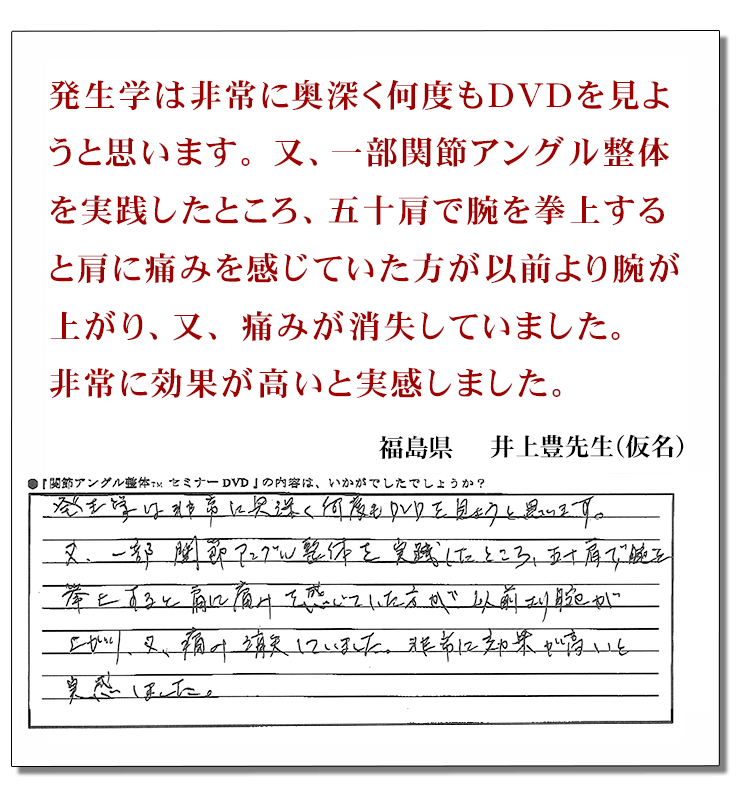 発生学は非常に奥深く何度もDVDを見よ
うと思います。又、一部関節アングル整体
を実践したところ、五十肩で腕を拳上する
と肩に痛みを感じていた方が以前より腕が
上がり、又、痛みが消失していました。
非常に効果が高いと実感しました。
福島県 井上豊先生(仮名)
●『関節アングル整体TM セミナーDVD』の内容は、いかがでしたでしょうか?
発生学は非常に奥深く何度もDVDを見ようと思います。
又、一部関節アングル整体を実践したところ、五十肩で腕を
挙上すると肩に痛みを感じていた方が以前より腕が
上がり、又、痛み消失していました。非常に効果が高いと
実感しました。